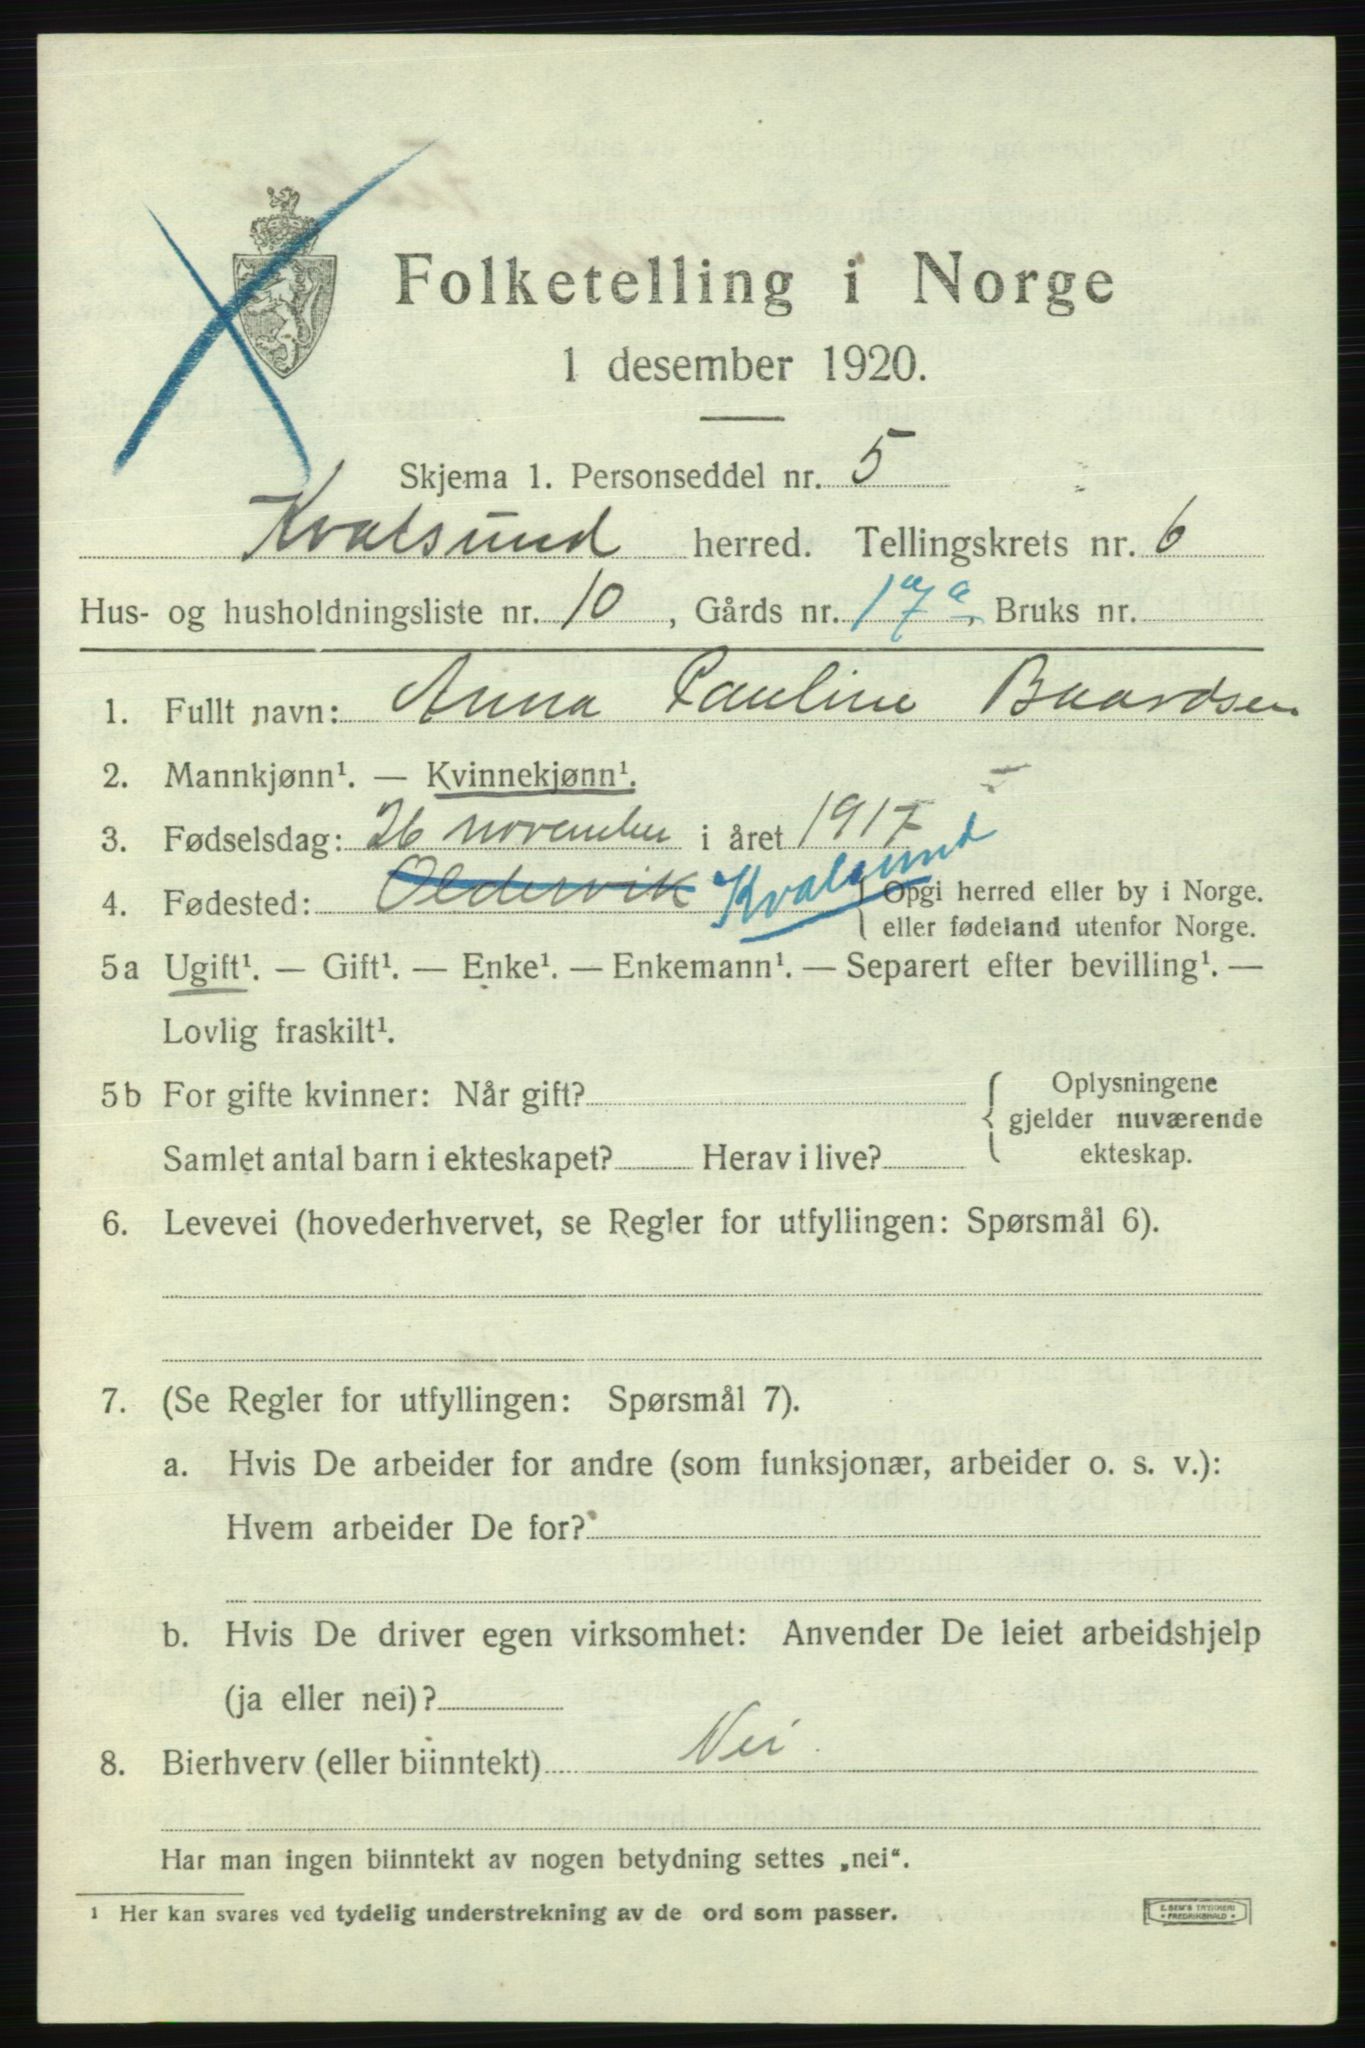 Folketelling i Norge
1 desember 1920.
Skjema 1. Personseddel nr. 5
Kvalsund herred. Tellingskrets nr. 6
Hus- og husholdningsliste nr. 10, Gårds nr. 17a a, Bruks nr.
1. Fullt navn: Anna Pauline Baardsen
2. Mannkjønn¹. — Kvinnekjønn¹.
3. Fødselsdag: 26 november i året 1917
4. Fødested: Oldervik Kvalsund { Opgi herred eller by i Norge.
eller fødeland utenfor Norge.
5a Ugift¹. — Gift¹. — Enke¹. — Enkemann¹. — Separert efter bevilling¹. —
Lovlig fraskilt¹.
5b For gifte kvinner: Når gift? { Oplysningene
gjelder nuværende
Samlet antal barn i ekteskapet? Herav i live? ekteskap.
6. Levevei (hovederhvervet, se Regler for utfyllingen: Spørsmål 6).
7. (Se Regler for utfyllingen: Spørsmål 7).
a. Hvis De arbeider for andre (som funksjonær, arbeider o. s. v.):
Hvem arbeider De for?
b. Hvis De driver egen virksomhet: Anvender De leiet arbeidshjelp
(ja eller nei)?
8. Bierhverv (eller biinntekt) Nei.
Har man ingen biinntekt av nogen betydning settes „nei“.
¹ Her kan svares ved tydelig understrekning av de ord som passer.
E. SEM'S TRYKKERI
FREDRIKSHALD